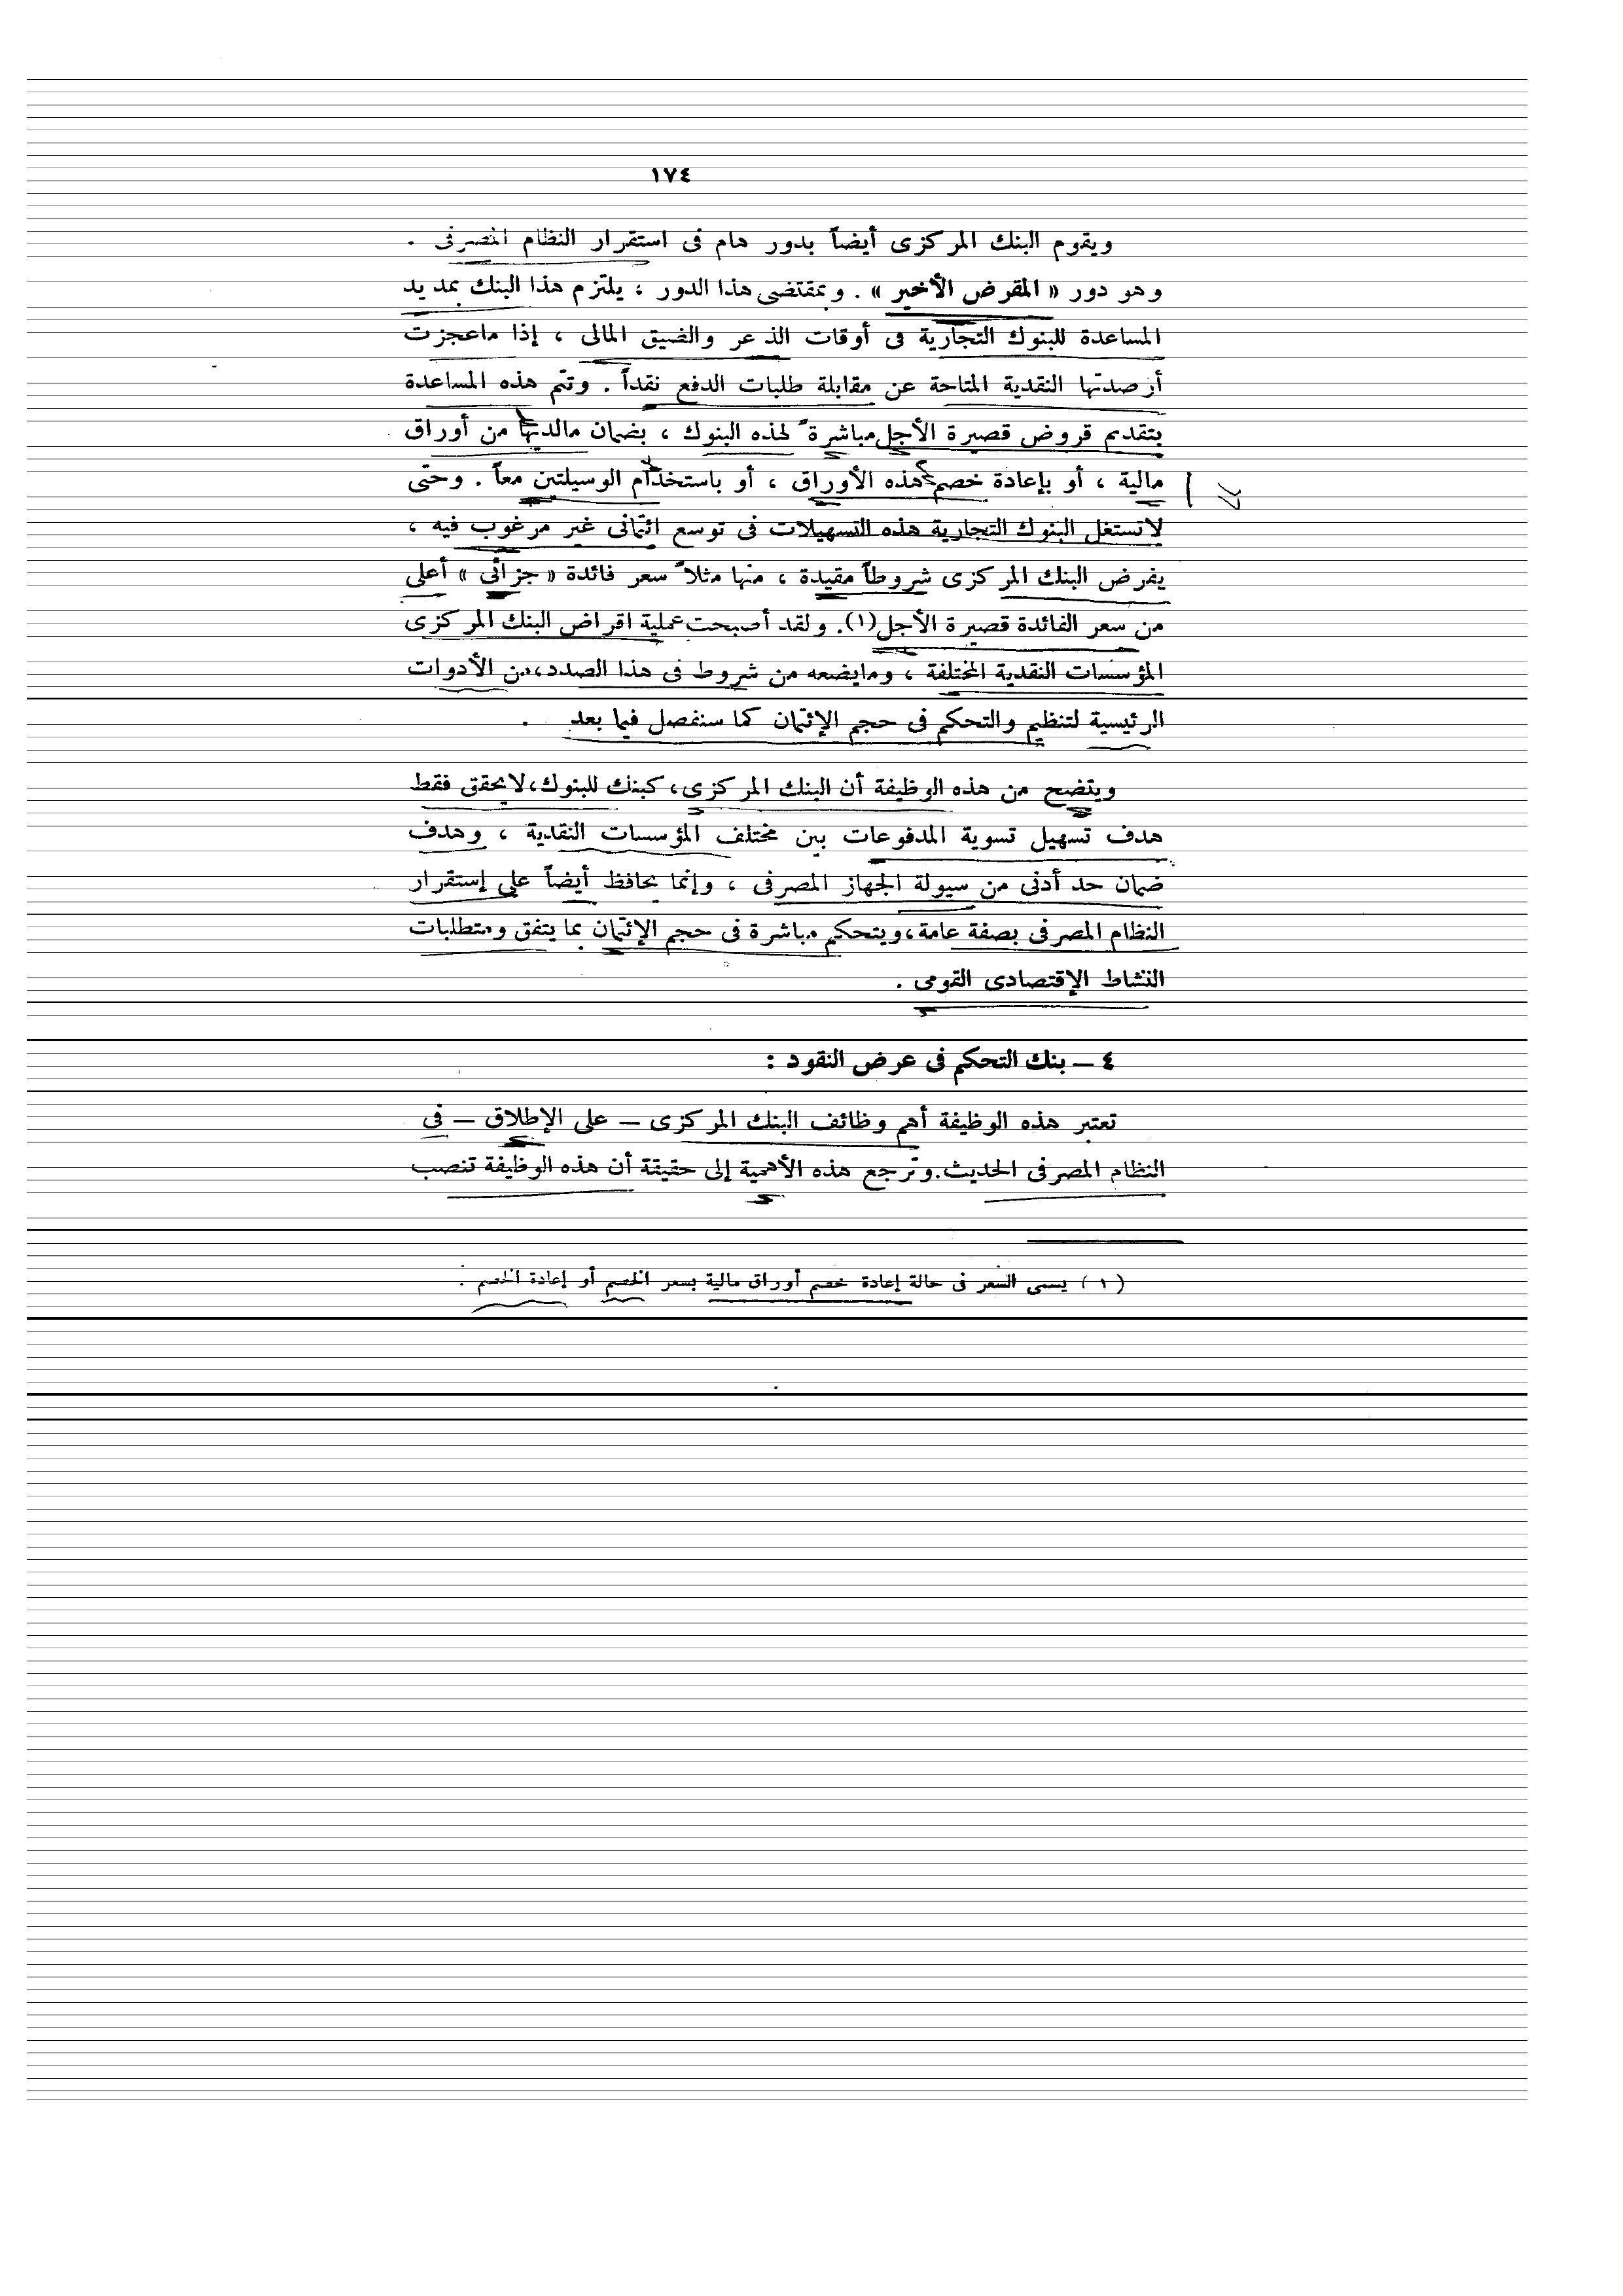 ١٧٤
ويقوم البنك المركزى أيضاً بدور هام فى استقرار النظام المصرفى .
وهو دور « المقرض الأخير » . وبمقتضى هذا الدور ، يلتزم هذا البنك بمد يد
المساعدة للبنوك التجارية فى أوقات الذعر والضيق المالى ، إذا ماعجزت
أرصدتها النقدية المتاحة عن مقابلة طلبات الدفع نقداً . وتتم هذه المساعدة
بتقديم قروض قصيرة الأجل مباشرة ً لهذه البنوك ، بضمان مالديها من أوراق
مالية ، أو بإعادة خصم هذه الأوراق ، أو باستخدام الوسيلتين معاً . وحتى
لاتستغل البنوك التجارية هذه التسهيلات فى توسع ائتمانى غير مرغوب فيه ،
يفرض البنك المركزى شروطاً مقيدة ، منها مثلا ً سعر فائدة « جزائى » أعلى
من سعر الفائدة قصيرة الأجل(١). ولقد أصبحت عملية اقراض البنك المركزى
المؤسسات النقدية المختلفة ، ومايضعه من شروط فى هذا الصدد،من الأدوات
الرئيسية لتنظيم والتحكم فى حجم الإئتمان كما سنفصل فيما بعد .
ويتضح من هذه الوظيفة أن البنك المركزى، كبنك للبنوك،لايحقق فقط
هدف تسهيل تسوية المدفوعات بين مختلف المؤسسات النقدية ، وهدف
ضمان حد أدنى من سيولة الجهاز المصرفى ، وإنما يحافظ أيضاً على إستقرار
النظام المصرفى بصفة عامة،ويتحكم مباشرة فى حجم الإئتمان بما يتفق ومتطلبات
النشاط الإقتصادى القومى .
٤ – بنك التحكم فى عرض النقود :
تعتبر هذه الوظيفة أهم وظائف البنك المركزى – على الإطلاق – فى
النظام المصرفى الحديث.وترجع هذه الأهمية إلى حقيقة أن هذه الوظيفة تنصب
( ١ ) يسمى السعر فى حالة إعادة خصم أوراق مالية بسعر الخصم أو إعادة الخصم .